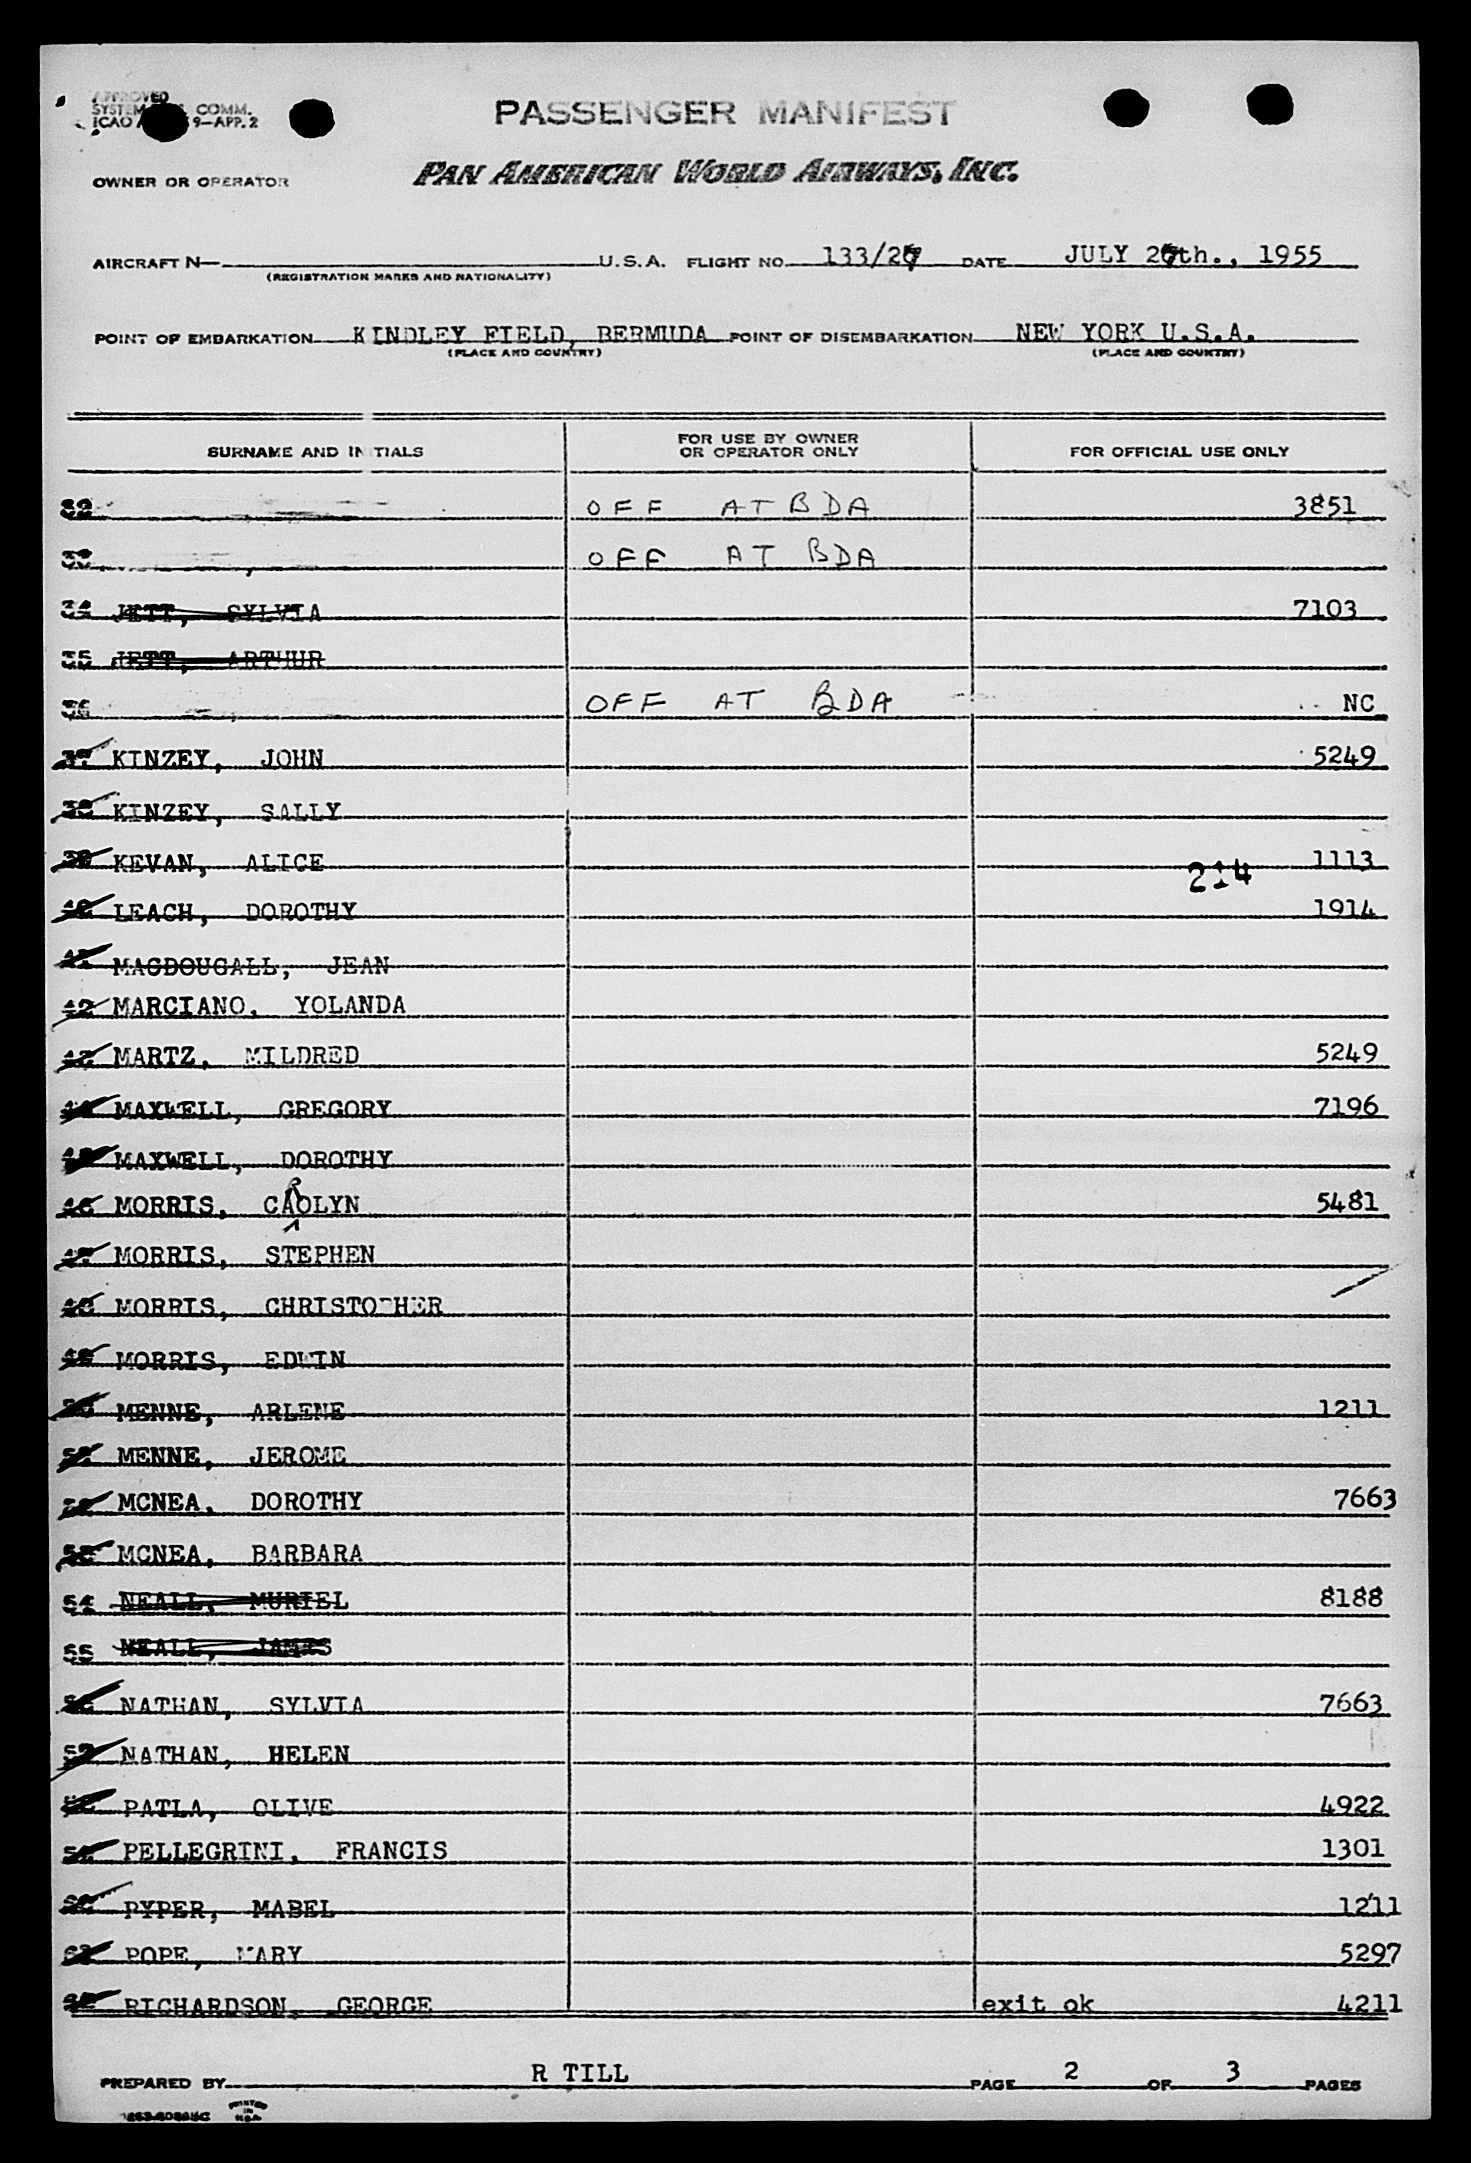 APPROVED
SYSTEM COMM.
ICAO 9-APP. 2
PASSENGER MANIFEST
OWNER OR OPERATOR PAN AMERICAN WORLD AIRWAYS, INC.
AIRCRAFT N- U.S.A. FLIGHT NO. 133/27 DATE JULY 27th., 1955
(REGISTRATION MARKS AND NATIONALITY)
POINT OF EMBARKATION KINDLEY FIELD, BERMUDA POINT OF DISEMBARKATION NEW YORK U.S.A.
(PLACE AND COUNTRY) (PLACE AND COUNTRY)
SURNAME AND INITIALS FOR USE BY OWNER OR OPERATOR ONLY FOR OFFICIAL USE ONLY
32 OFF AT BDA 3851
33 OFF AT BDA
34 JETT, SYLVIA 7103
35 JETT, ARTHUR
36 OFF AT BDA NC
37 KINZEY, JOHN 5249
38 KINZEY, SALLY
39 KEVAN, ALICE 1113
214
40 LEACH, DOROTHY 1914
41 MACDOUGALL, JEAN
42 MARCIANO, YOLANDA
43 MARTZ, MILDRED 5249
44 MAXWELL, GREGORY 7196
45 MAXWELL, DOROTHY
46 MORRIS, CAROLYN 5481
47 MORRIS, STEPHEN
48 MORRIS, CHRISTOPHER
49 MORRIS, EDWIN
50 MENNE, ARLENE 1211
51 MENNE, JEROME
52 MCNEA, DOROTHY 7663
53 MCNEA, BARBARA
54 NEALL, MURIEL 8188
55 NEALL, JAMES
56 NATHAN, SYLVIA 7663
57 NATHAN, HELEN
58 PATLA, OLIVE 4922
59 PELLEGRINI, FRANCIS 1301
60 PYPER, MABEL 1211
61 POPE, MARY 5297
62 RICHARDSON, GEORGE exit ok 4211
PREPARED BY R TILL PAGE 2 OF 3 PAGES
PRINTED IN U.S.A.